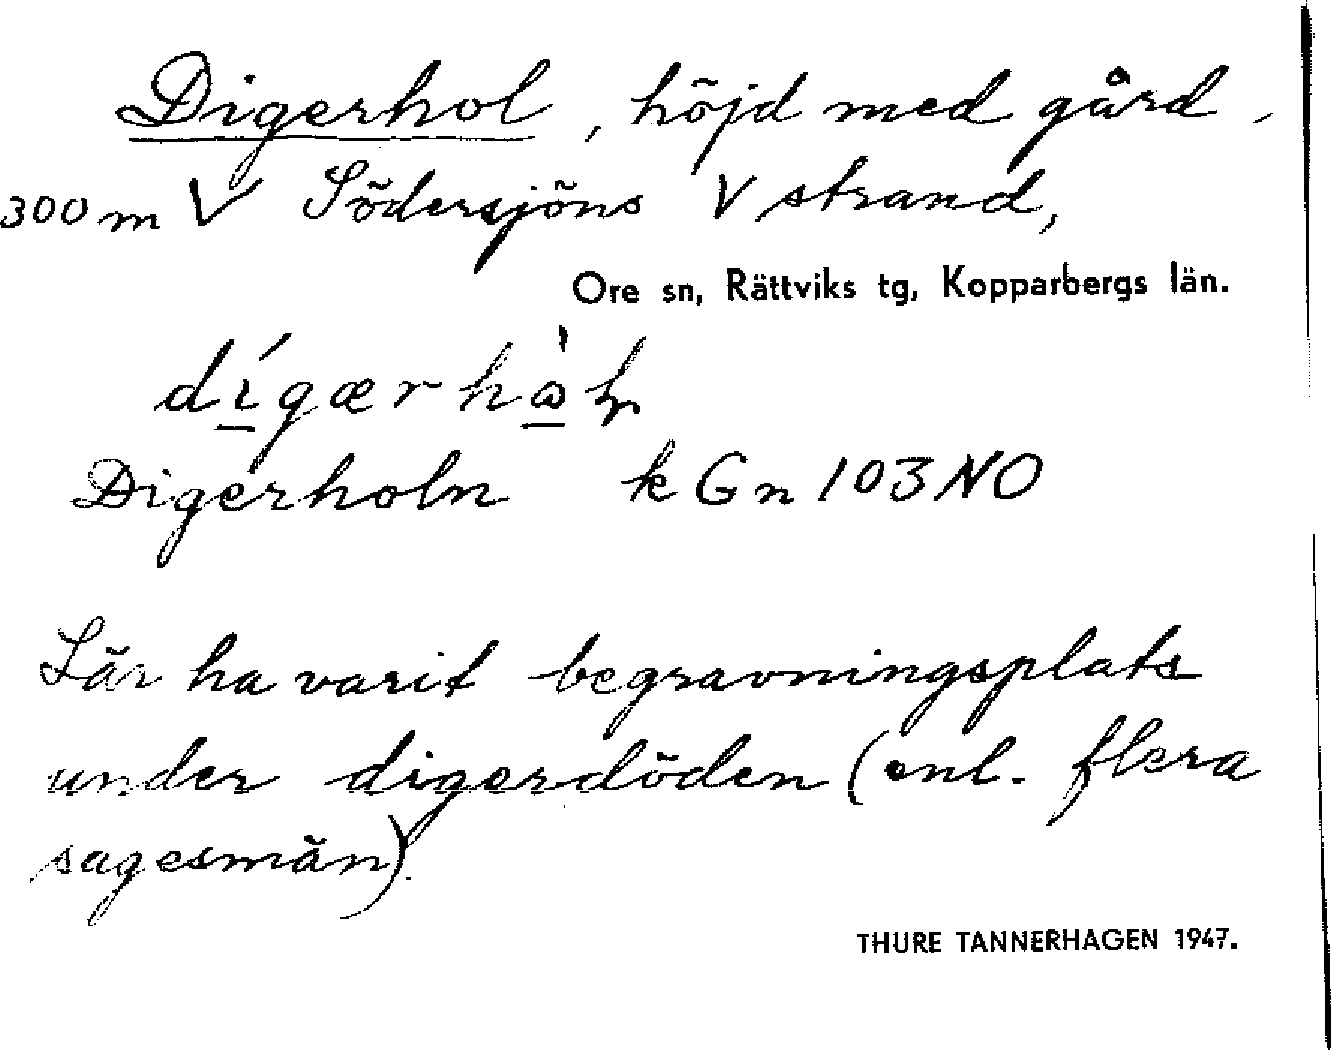 Digerhol, höjd med gård,
300 m V Södersjöns V strand,
Ore sn, Rättviks tg, Kopparbergs län.
Digerholn k Gn 103 NO
Lär ha varit begravningsplats
under digerdöden (enl. flera
sagesmän).
THURE TANNERHAGEN 1947.